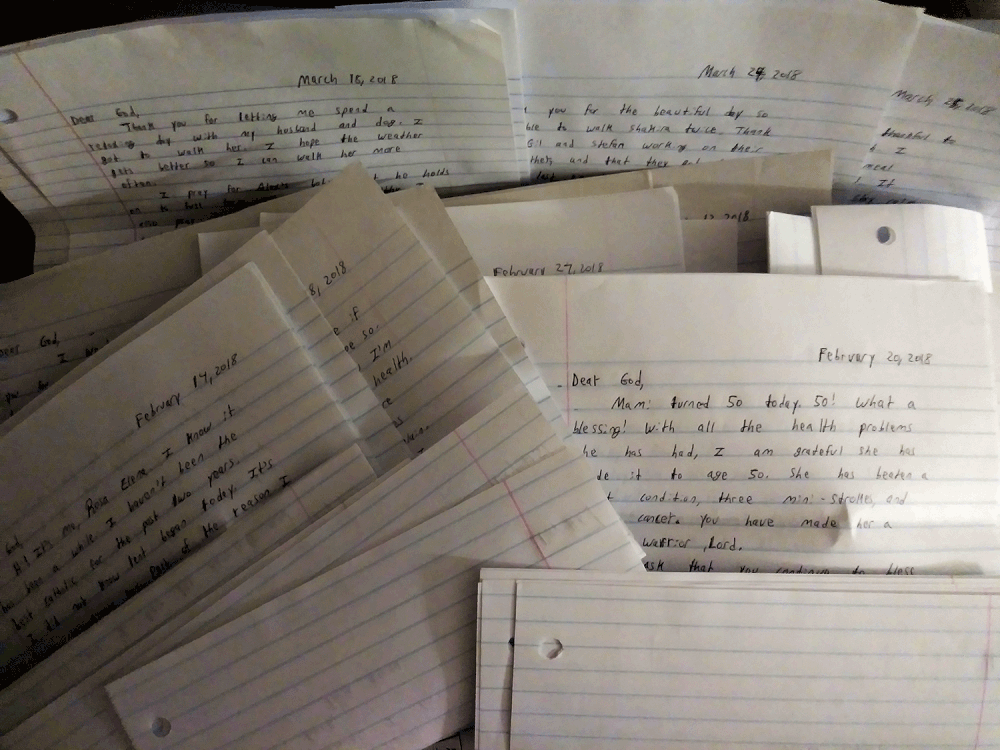 March 15, 2018
Dear God,
Thank you for letting me spend a
relaxing day with my husband and dog. I
got to walk her. I hope the weather
gets better so I can walk her more
often.
I pray for he holds
March 24, 2018
you for the beautiful day so
able to walk Shakira twice. Thank
Gil and Stefan working on their
and that they
March 25, 2018
thankful to
I
meal
It
12, 2018
February 27, 2018
Dear God,
I
you for
8, 2018
if
so.
I'm
health.
February 14, 2018
God,
Hi! It's me, Rosa Elena. I know it
has been a while. I haven't been the
best catholic for the past two years.
I did not know lent began today. It's
part of the reason I
February 20, 2018
Dear God,
Mami turned 50 today. 50! What a
blessing! With all the health problems
he has had, I am grateful she has
de it to age 50. She has beaten a
t condition, three mini-strokes, and
cancer. You have made her a
warrior, Lord.
ask that you continue to bless